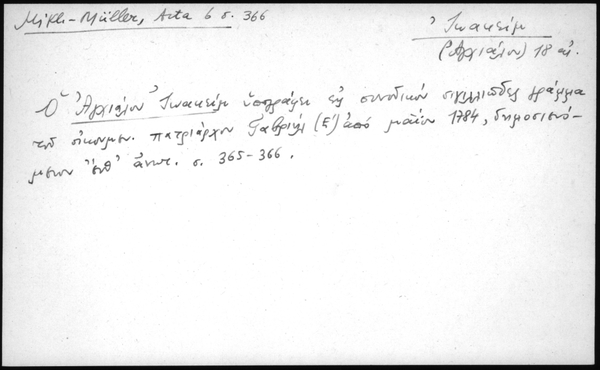 Mikl.-Müller, Acta 6 σ. 366
Ἰωακείμ
(Ἀγχιάλου) 18 αἰ.
Ὁ Ἀγχιάλου Ἰωακείμ ὑπογράφει εἰς συνοδικόν σιγιλλιῶδες γράμμα
τοῦ οἰκουμεν. πατριάρχου Γαβριήλ (Ε΄) ἀπό μαΐου 1784, δημοσιευό-
μενον ἔνθ᾽ ἀνωτ. σ. 365-366.